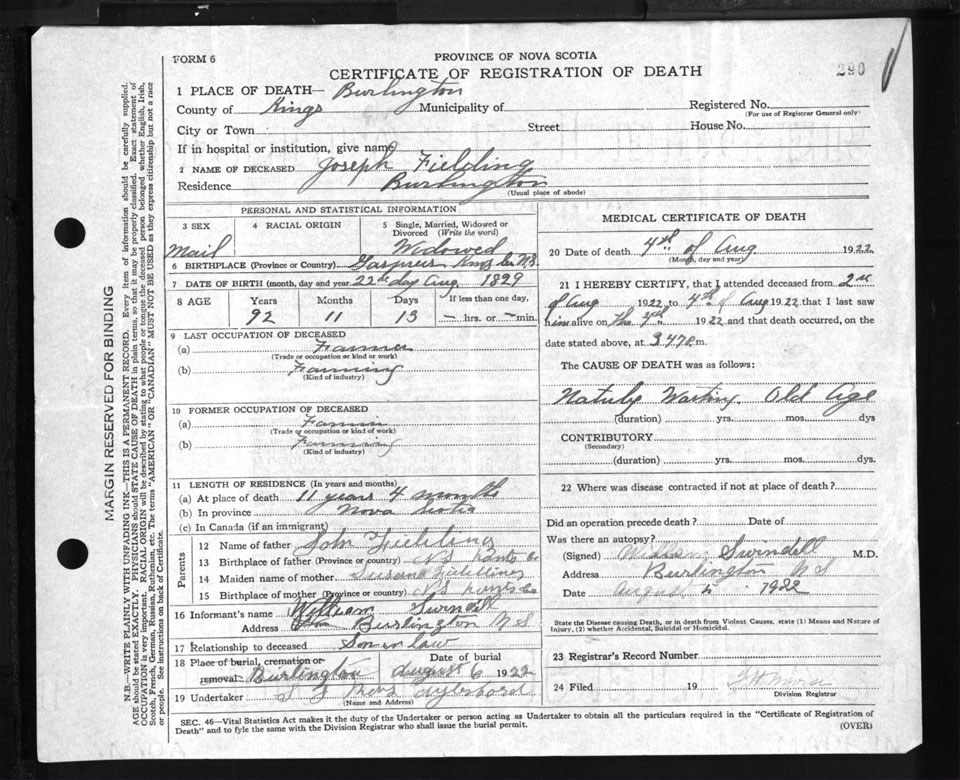 FORM 6
PROVINCE OF NOVA SCOTIA
290
CERTIFICATE OF REGISTRATION OF DEATH
1 PLACE OF DEATH— Burlington
County of Kings Municipality of Registered No.
(For use of Registrar General only)
City or Town Street House No.
If in hospital or institution, give name
2 NAME OF DECEASED Joseph Fielding
Residence Burlington
(Usual place of abode)
PERSONAL AND STATISTICAL INFORMATION
3 SEX 4 RACIAL ORIGIN 5 Single, Married, Widowed or Divorced (Write the word)
Mail Widowed
6 BIRTHPLACE (Province or Country) Kings Co N.S.
7 DATE OF BIRTH (month, day and year) 22 day Aug. 1829
8 AGE Years Months Days If less than one day,
92 11 13 — hrs. or — min.
9 LAST OCCUPATION OF DECEASED
(a) Farmer
(Trade or occupation or kind of work)
(b) Farming
(Kind of industry)
10 FORMER OCCUPATION OF DECEASED
(a) Farmer
(Trade or occupation or kind of work)
(b) Farming
(Kind of industry)
11 LENGTH OF RESIDENCE (In years and months)
(a) At place of death 11 years 4 months
(b) In province Nova Scotia
(c) In Canada (if an immigrant)
Parents
12 Name of father John Fielding
13 Birthplace of father (Province or country) NS Hants Co
14 Maiden name of mother Susana
15 Birthplace of mother (Province or country) NS Hants Co
16 Informant's name William Swindell
Address Burlington N S
17 Relationship to deceased Son er law
18 Place of burial, cremation or removal Burlington Date of burial August 6 1922
19 Undertaker Aylesford
(Name and Address)
MEDICAL CERTIFICATE OF DEATH
20 Date of death 4th of Aug 1922
(Month, day and year)
21 I HEREBY CERTIFY, that I attended deceased from 2
of Aug 1922 to 4th of Aug 1922 that I last saw
him alive on the 1922 and that death occurred, on the
date stated above, at m.
The CAUSE OF DEATH was as follows:
Wasting Old Age
(duration) yrs. mos. dys
CONTRIBUTORY
(Secondary)
(duration) yrs. mos. dys.
22 Where was disease contracted if not at place of death?
Did an operation precede death? Date of
Was there an autopsy?
(Signed) William Swindell M.D.
Address Burlington N S
Date August 1922
State the Disease causing Death, or in death from Violent Causes, state (1) Means and Nature of
Injury, (2) whether Accidental, Suicidal or Homicidal.
23 Registrar's Record Number
24 Filed 19
Division Registrar
SEC. 46—Vital Statistics Act makes it the duty of the Undertaker or person acting as Undertaker to obtain all the particulars required in the "Certificate of Registration of
Death" and to fyle the same with the Division Registrar who shall issue the burial permit. (OVER)
MARGIN RESERVED FOR BINDING
N.B.—WRITE PLAINLY WITH UNFADING INK—THIS IS A PERMANENT RECORD. Every item of information should be carefully supplied.
AGE should be stated EXACTLY. PHYSICIANS should STATE CAUSE OF DEATH in plain terms, so that it may be properly classified. Exact statement of
OCCUPATION is very important. RACIAL ORIGIN will be described by stating to what people or tongue the deceased person belonged whether English, Irish,
Scotch, French, German, Russian, Ruthenian, etc. The terms "AMERICAN" OR "CANADIAN" MUST NOT BE USED as they express citizenship but not a race
or people. See instructions on back of Certificate.